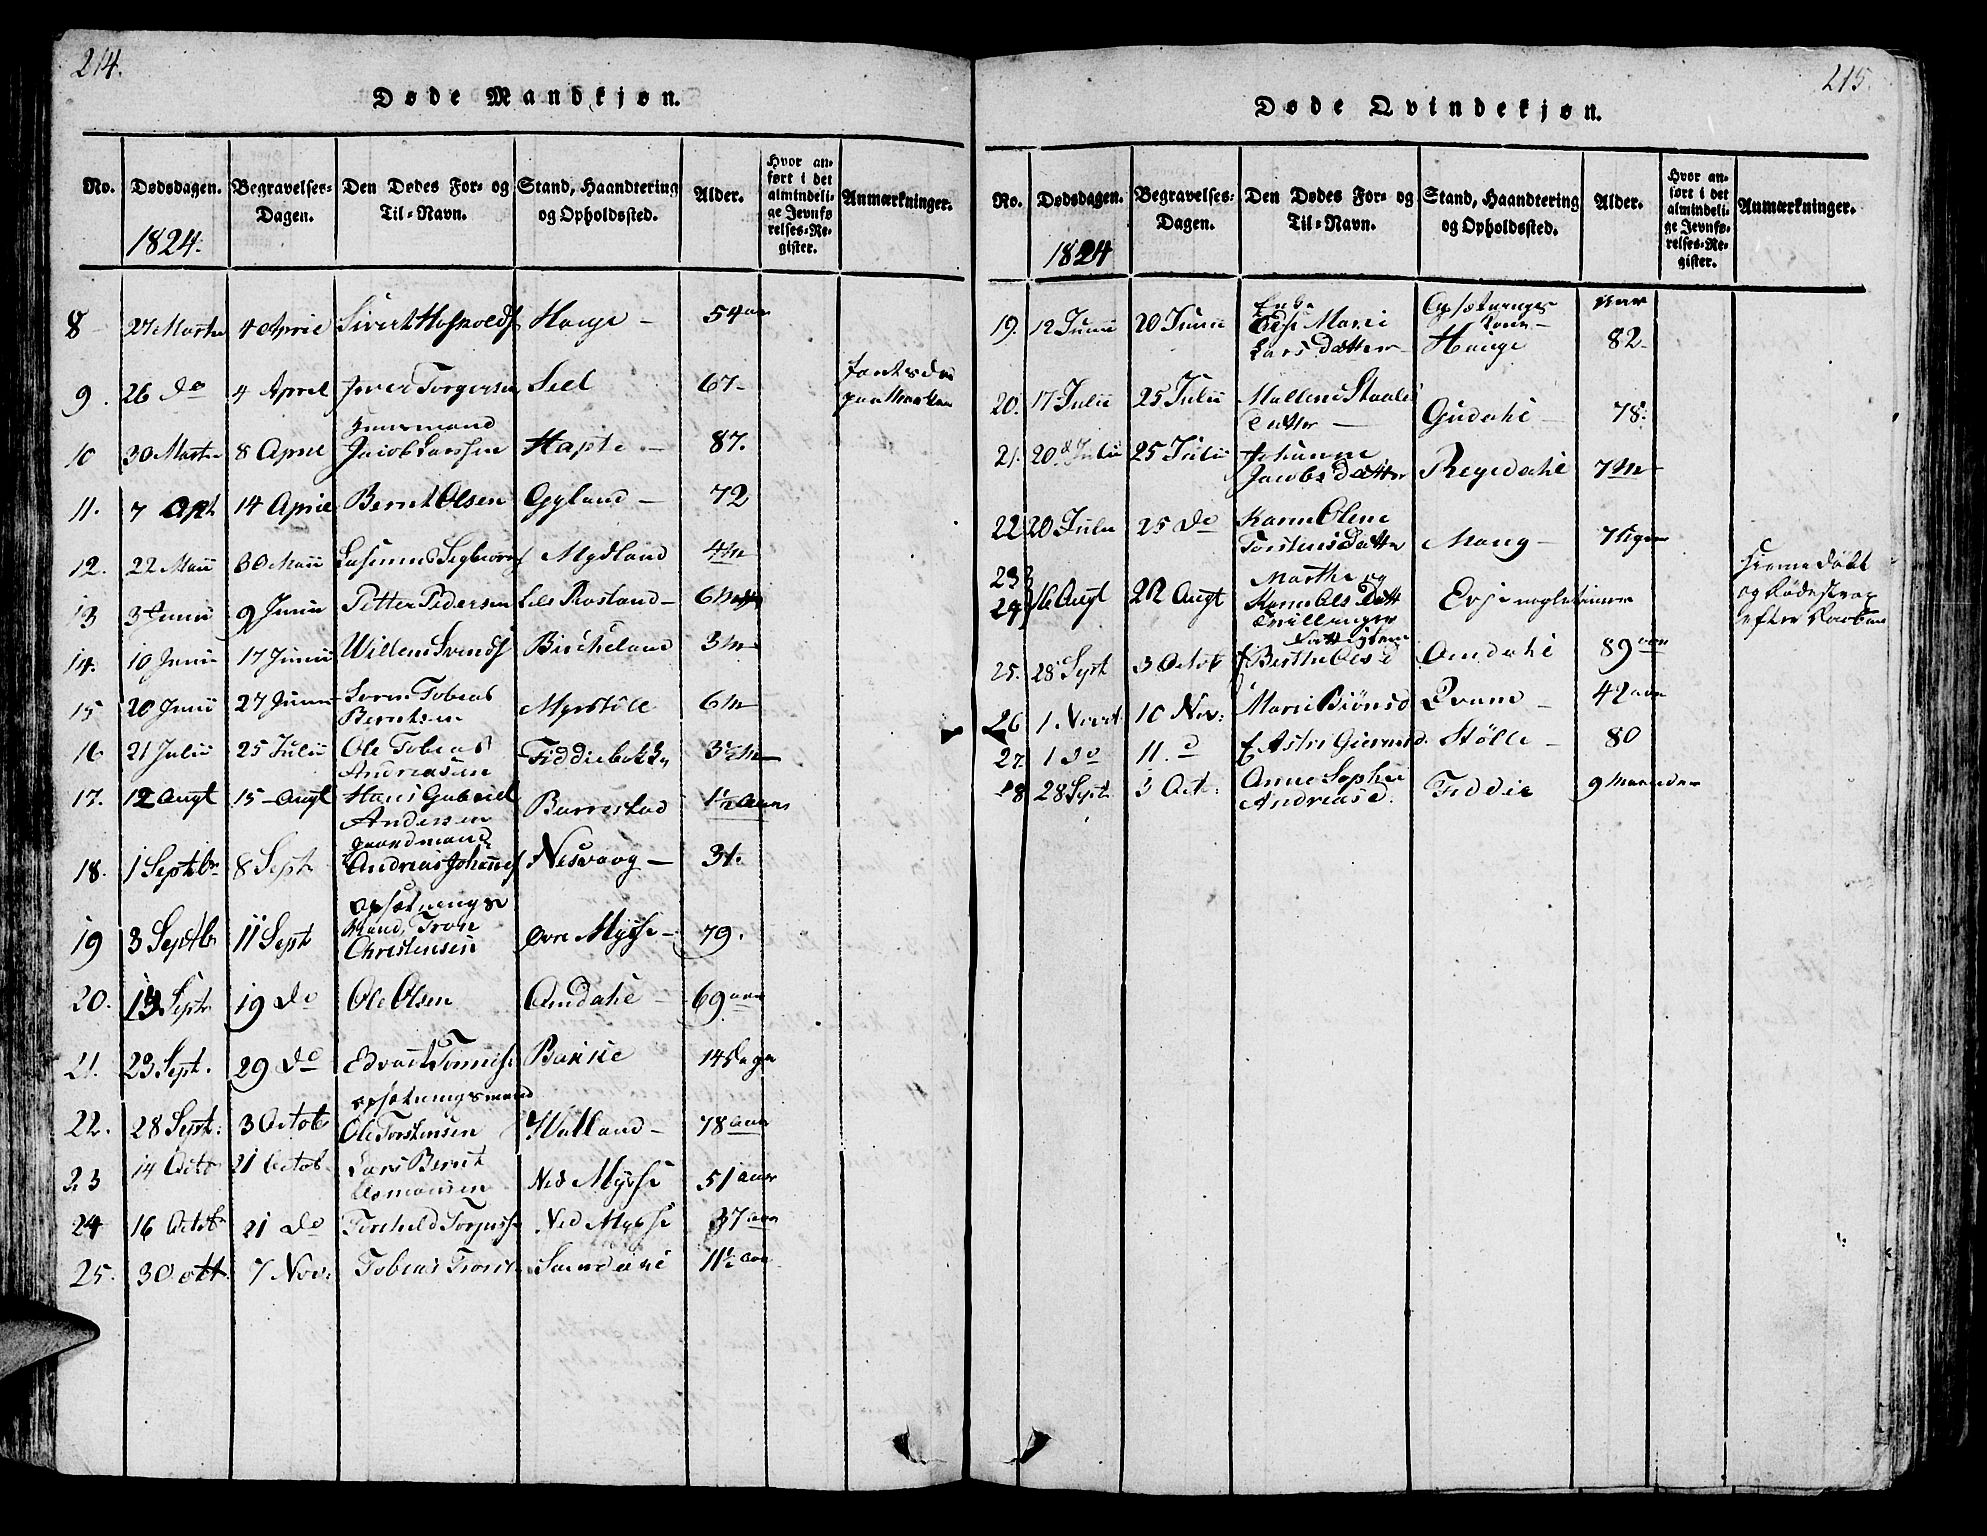 214.
Døde Mandkjøn.
No. Dødsdagen. Begravelses-Dagen. Den Dødes For- og Til-Navn. Stand, Haandtering og Opholdssted. Alder. Hvor anført i det almindelige Jevnførelses-Register. Anmærkninger.
1824.
8 27 Marts 4 Aprie Sivert Hage 54 aar
9. 26 do 4 April Iver Torgersen Seel 67
10 30 Marts 8 Aprie Jacob Larssen 87.
11. 7 Apr 14 Aprie Bernt Olsen Gyland 72
12. 22 Maii 30 Maii Mydland 4 M
13 3 Junii 9 Junii Petter Pedersen Lele Rostand 6
14. 10 Junii 17 Junii Willem Svends Birkeland 3 M
15 20 Junii 27 Junii Søren Tobias
Berntsen Myrstøll 6 M
16 21 Julii 25 Julii Ole Tobias
Andreasen Fiddiebakke 3½ M
17. 12 Augt 15 Augt Hans Gabriel
Andersen Barrestad 1½ Aars
Gaardmand
18. 1 Septbr 8 Sept Andreas Johannes Nesvaag 31.
opsætnings
19 3 Septbr 11 Sept Mand, Tron
Christensen Øvre Mysse 79.
20. 13 Sept 19 do Ole Olsen Omdahl 69 aar
21. 23 Sept. 29 do Edvart Tønnes Bakke 14 Dage
opsætningsmand
22. 28 Sept. 3 Octob Ole Torstensen Hvalland 78 aar
23 14 Octb 21 Octob. Lars Bernt
Asmonsen Ned Mysse 51 aar
24 16 Octb 21 do Ned Mysse 37 aar
25. 30 Oct 7 Nov. Tobias Trons 11½ aar
215.
Døde Qvindekjøn.
No. Dødsdagen. Begravelses-Dagen. Den Dødes For- og Til-Navn. Stand, Haandtering og Opholdssted. Alder. Hvor anført i det almindelige Jevnførelses-Register. Anmærkninger.
1824
19. 12 Junii 20 Junii Enke
Else Marie
Lars Datter Opsætnings
Kone
Hauge aar
82
20. 17 Julii 25 Julii Mallene Staales
Datter Gudahl 78.
21. 20 Julii 25 Julii Johanne
Jacobs Datter Regedahl 7 M
22 20 Julii 25 do Karen Olene
Torstens Datter Mong 7 Uger
23
24 16 Augt 22 Augt Marthe og
Karen Ols Datt
Tvillinger Evje
25. 28 Sept 3 Octob Berthe Olsd Omdahl 89 aar
26 1 Novt 10 Nov: Marie Biønsd Qvam 42 aar
27. 1 do 11. d Astri Støle 80
28 28 Sept 3 Oct. Anne Sophie
Andreasd. Fiddie 9 Maaneder
hiemedøbt
efter